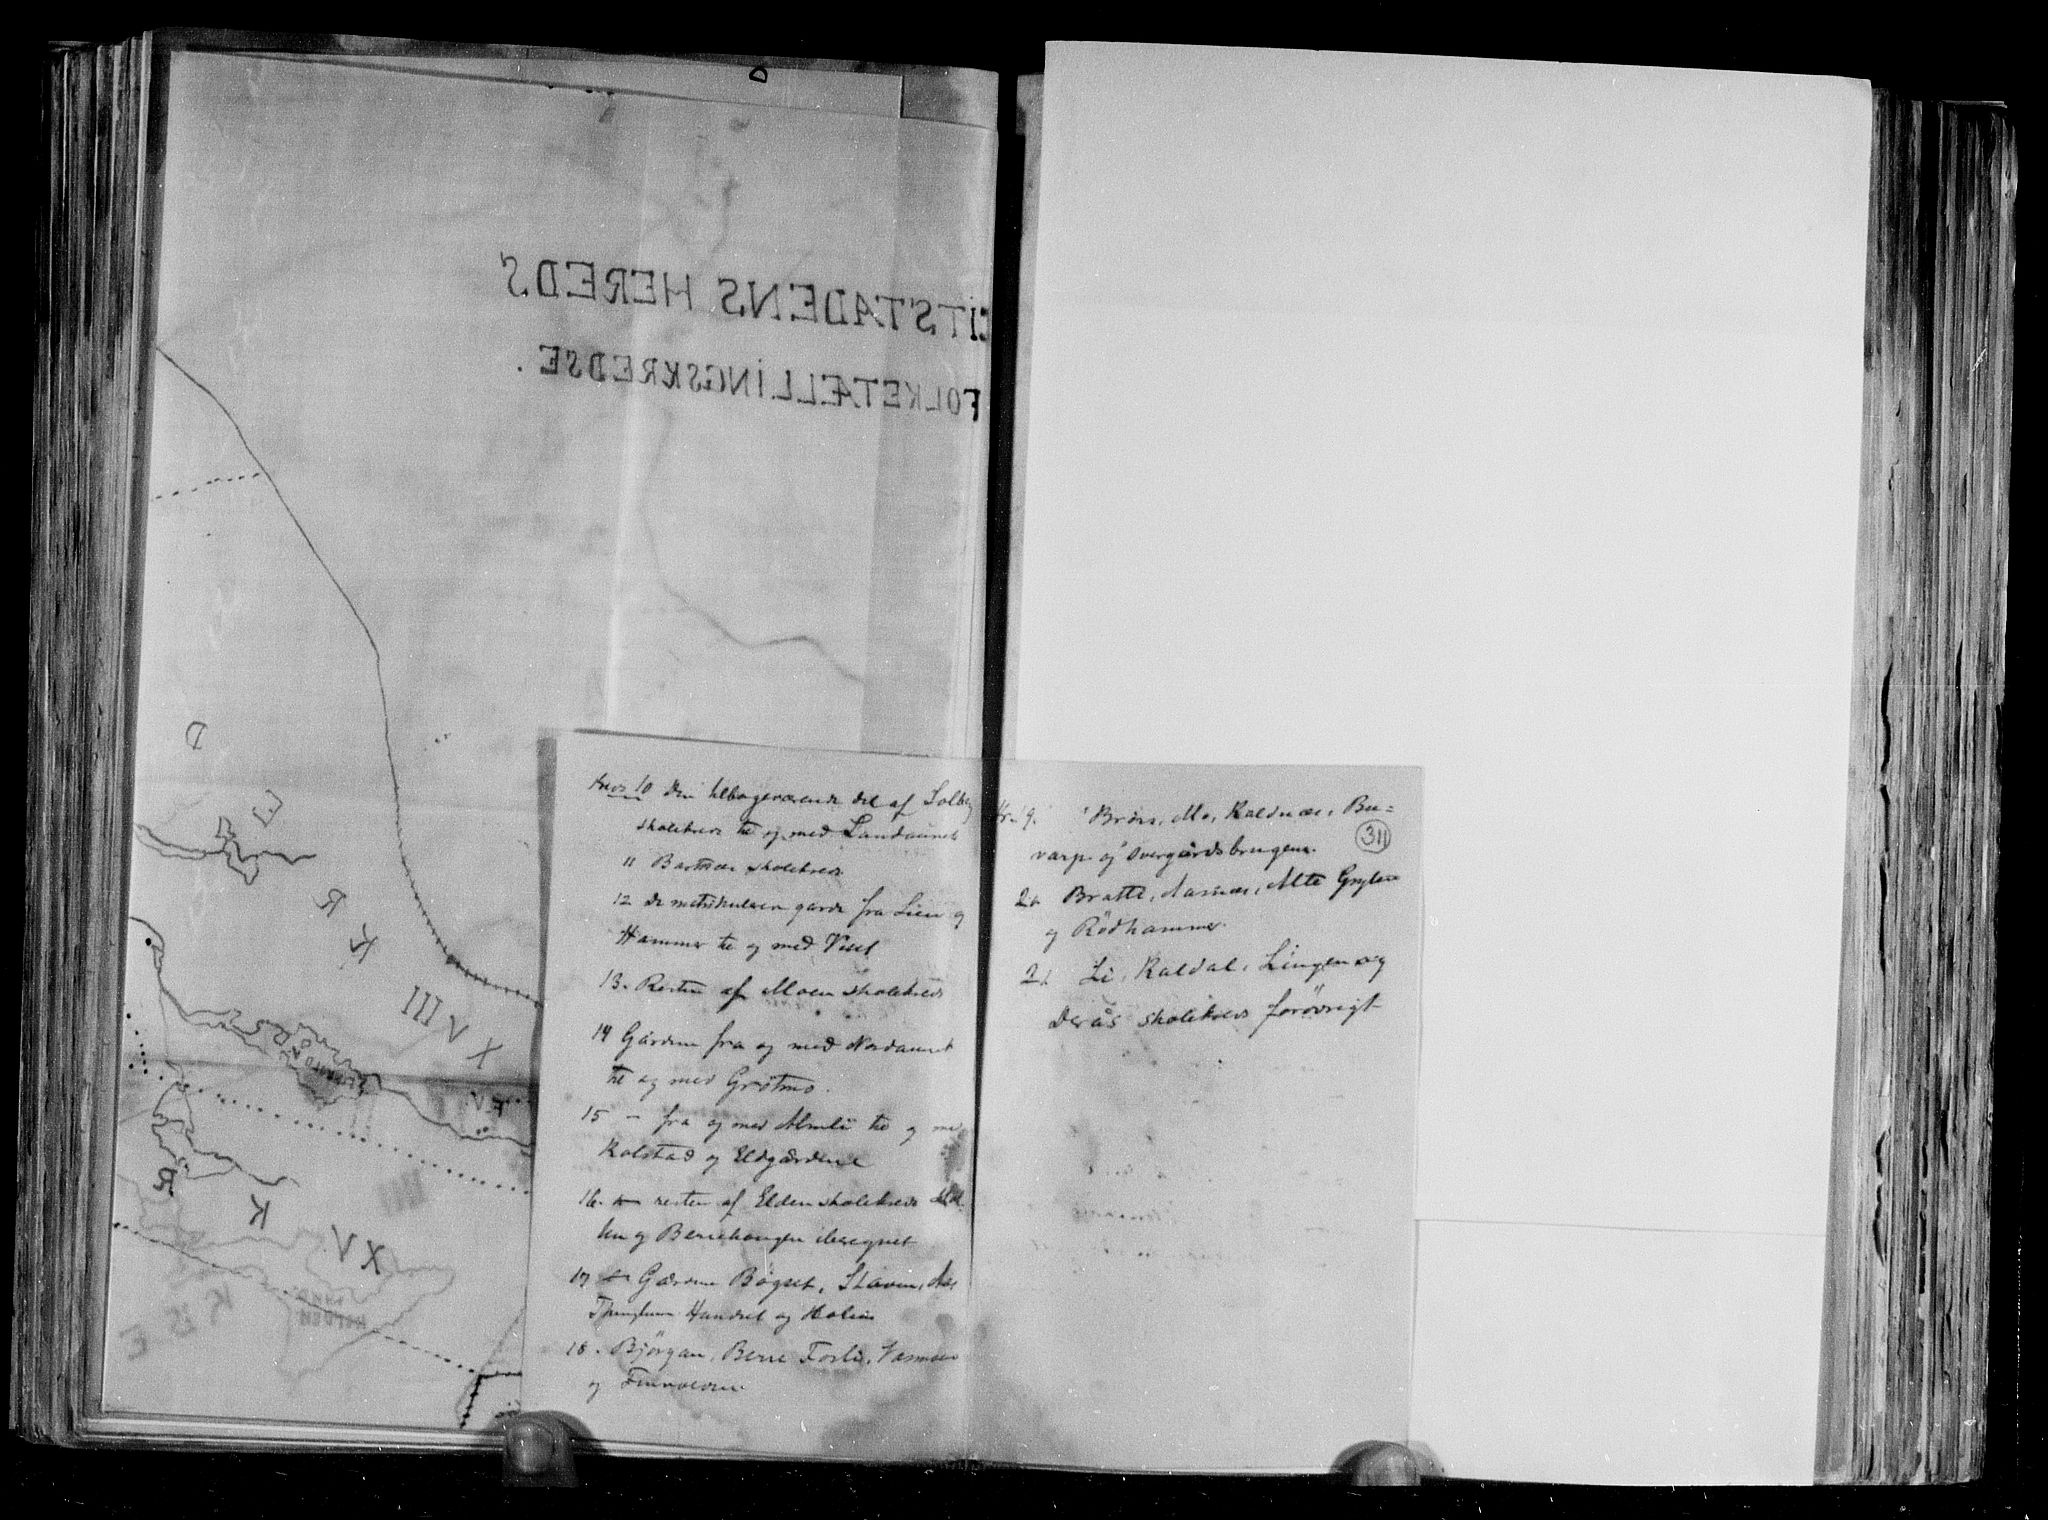 CITSTADENS HEREDS
FOLKETÆLLINGSKREDSE.
D
E
R
K
XVIII
XV
K
R
Kreds 10 Den tilbageværende del af Solberg
skolekreds til og med Landaunet
11 Bartnæs skolekreds
12 De matrikulerede gårde fra Lien og
Hammer til og med Vist
13. Resten af Moen skolekreds
14 Gårdene fra og med Nordaunet
til og med Grötmo.
15 - fra og med Almli til og med
Kolstad og Eldgårdene
16. resten af Elden skolekreds
og Berrehaugen iberegnet
17 Gårdene Bøgset, Staven,
Handsel og
18. Bjørgan, Berre Forli,
og
Kr. 9. Mo, Kaldnæs, Bu=
varp og Overgårdsbrugene.
311
20 Bratli, Aasnæs, Alte
og Rödhammer.
21 Li, Kaldal, Lingen og
Derås skolekreds forövrigt